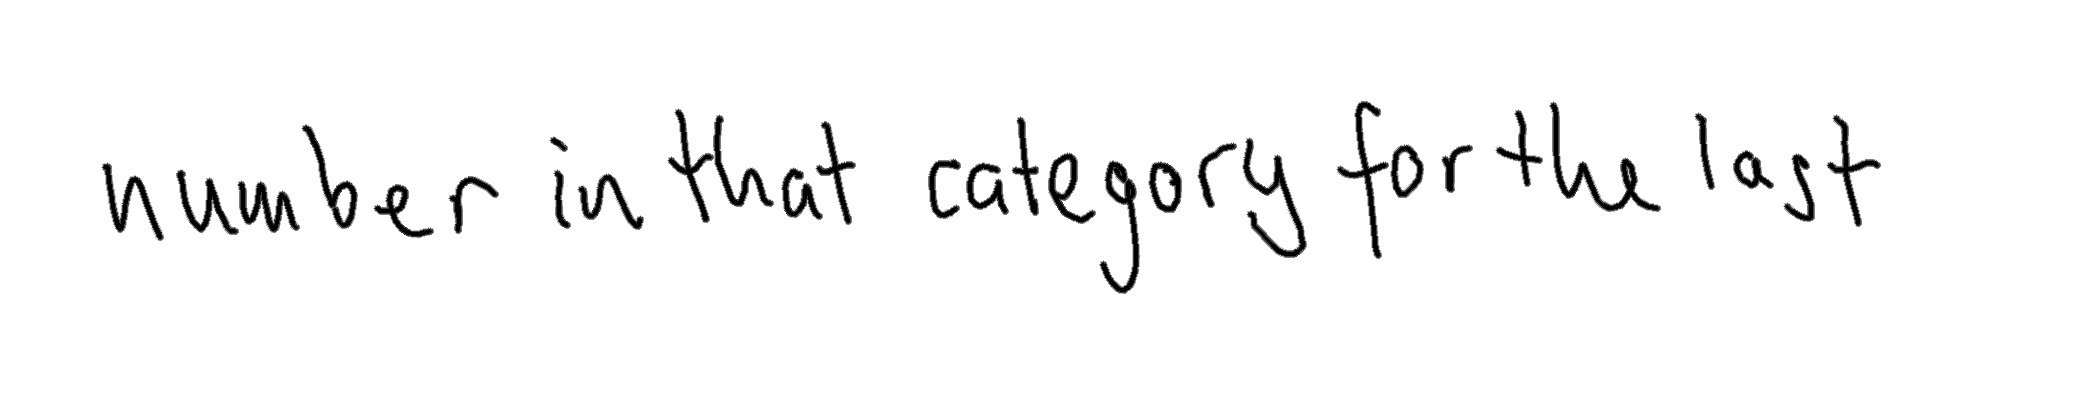 number in that category for the last